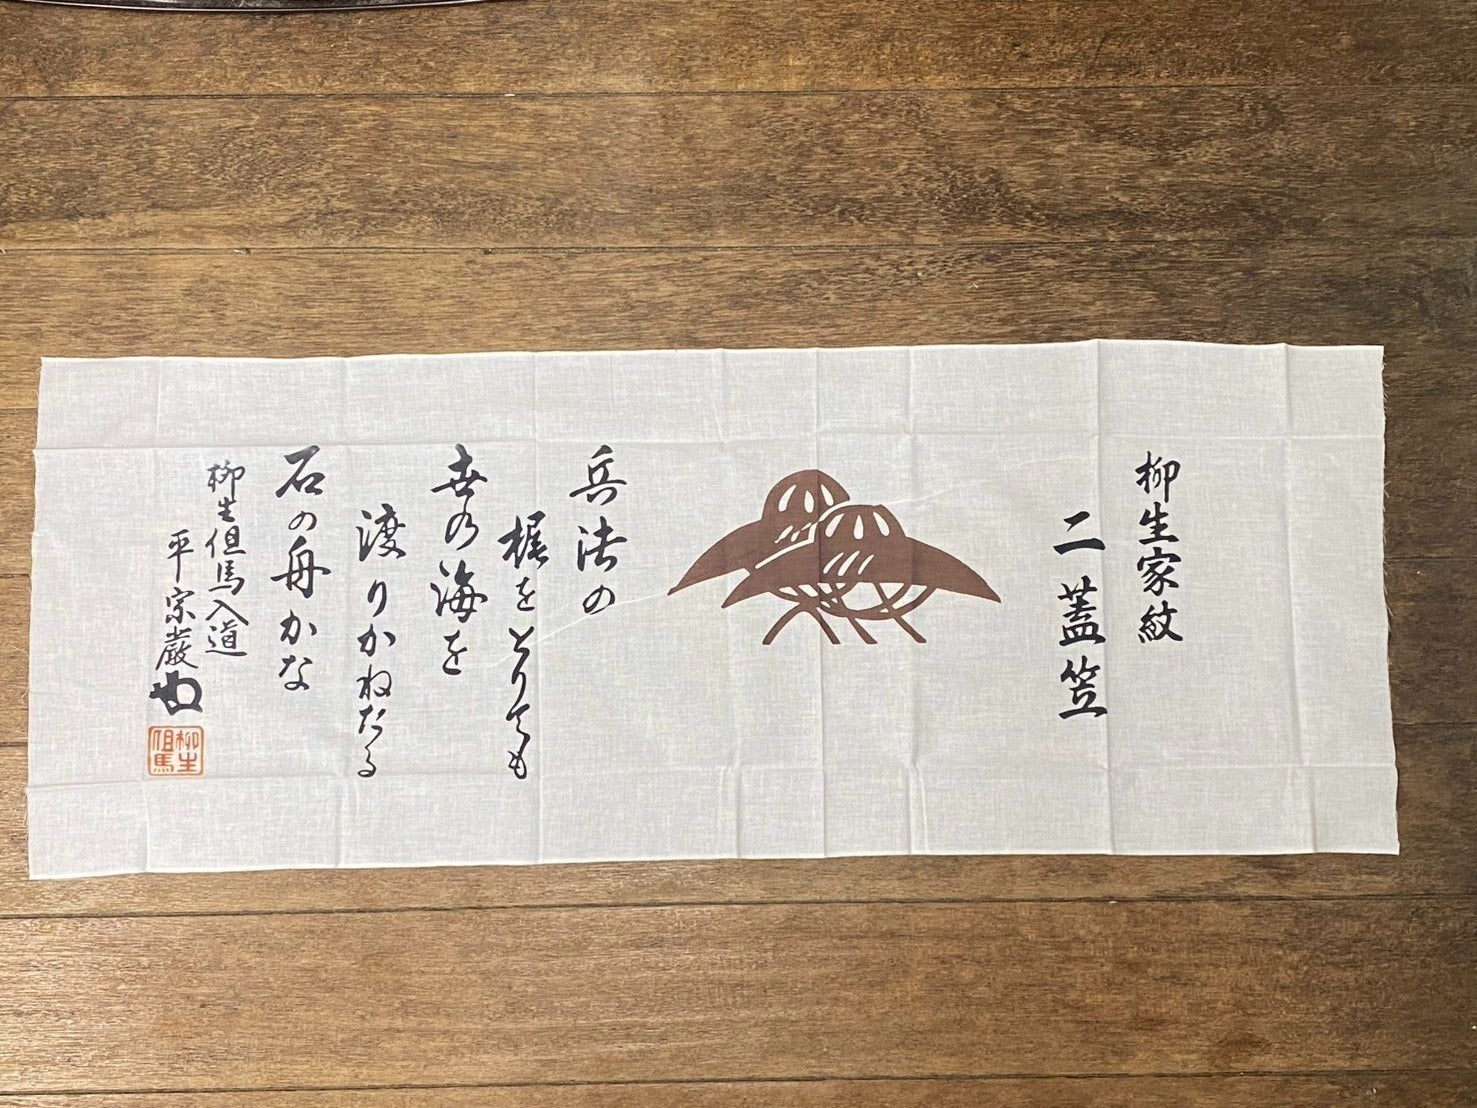 柳生家紋
二蓋笠
兵法の
梶をとりても
世乃海を
渡りかねたる
石の舟かな
柳生但馬入道
平宗厳
柳生
但馬